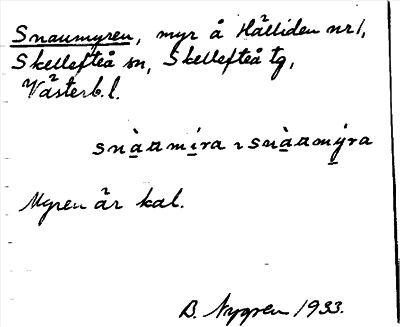 Snaumyren, myr å Hälliden nr 1,
Skellefteå sn, Skellefteå tg,
Västerb. l.
snàamíra ~ snàamýra
Myren är kal.
B. Nygren 1933.